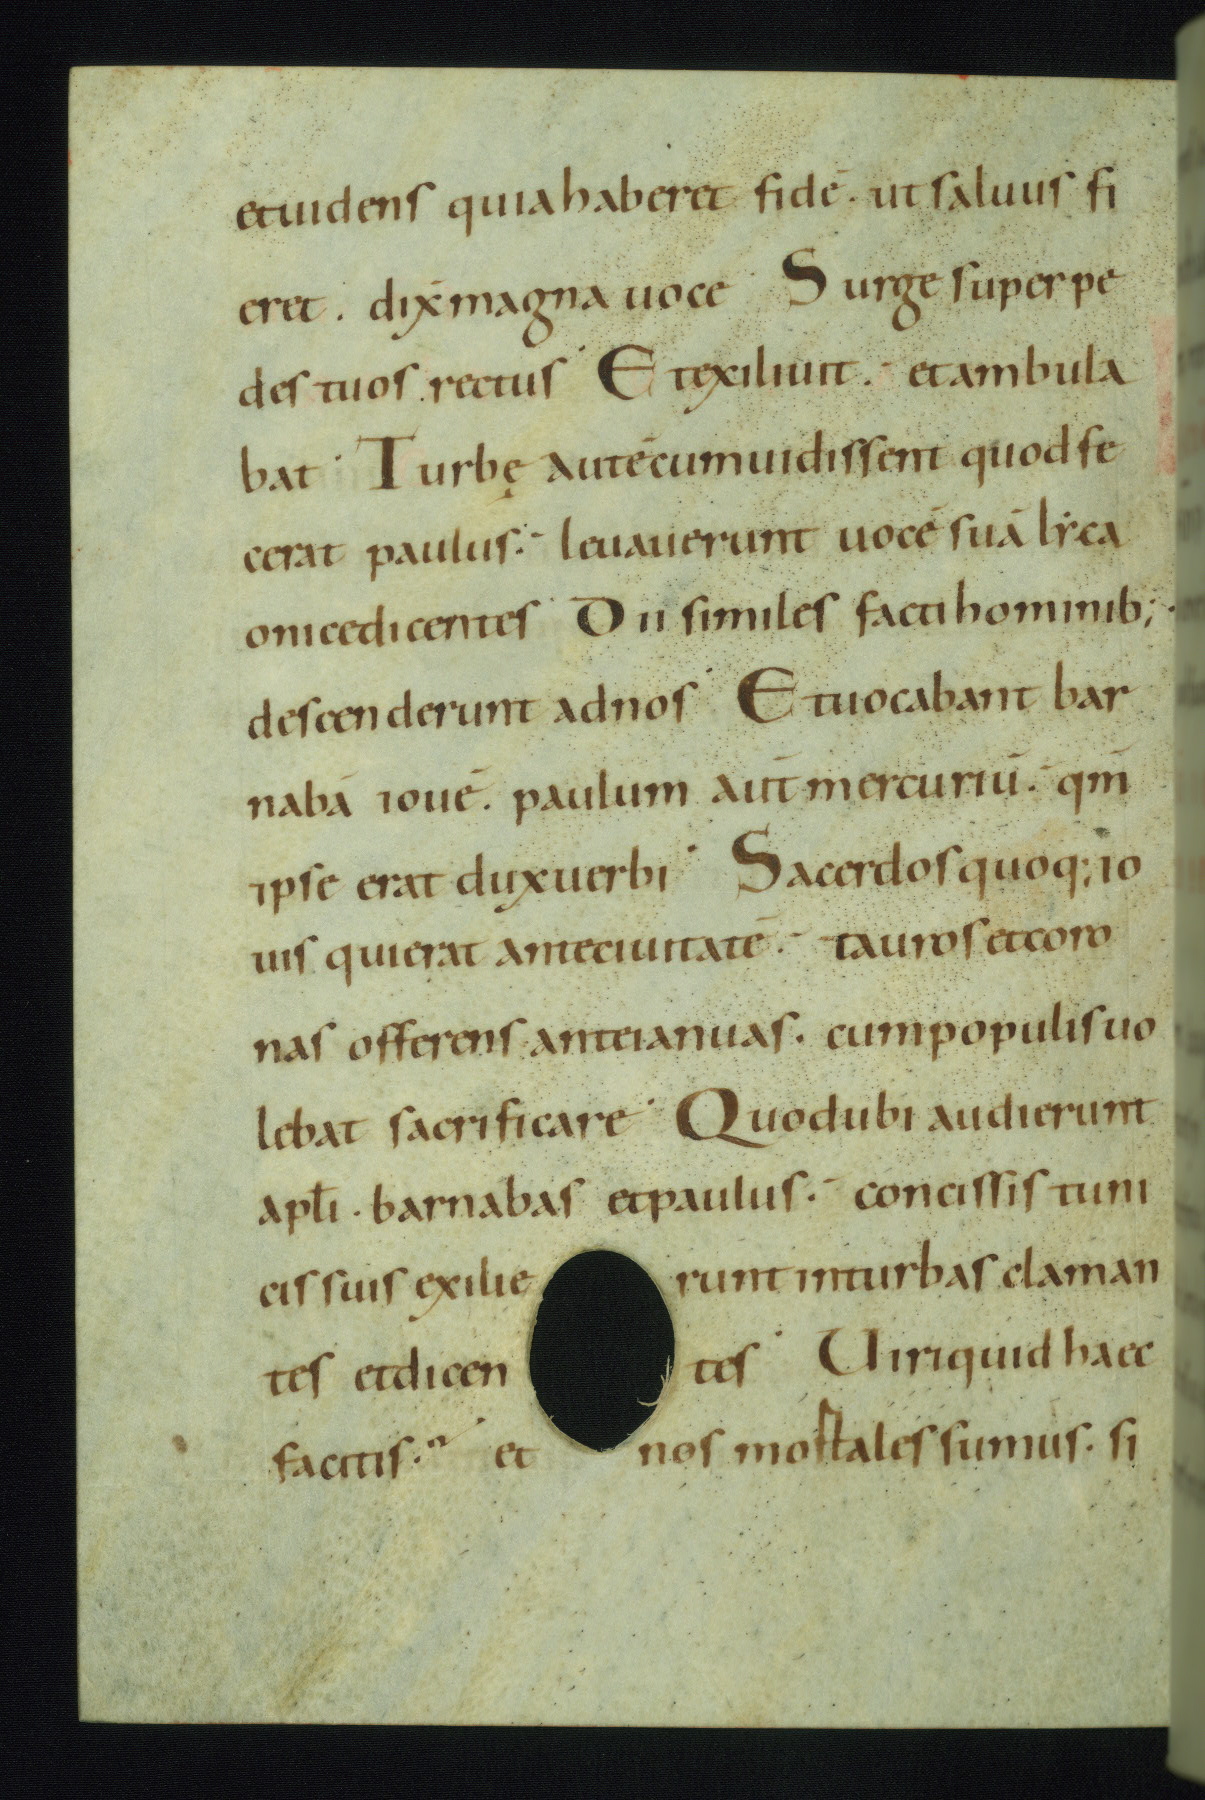 etuidens quiahaberet fidē. ut saluus fi
eret. dix̄ magna uoce· Surge super pe
des tuos rectus· Et exiliuit. et ambula
bat· Turbę autē cum uidissent quod fe
cerat paulus. leuauerunt uocē suā lẏca
onice dicentes· Dii similes facti hominib;·
descenderunt ad nos· Et uocabant bar
nabā iouē. paulum aut̄ mercuriū. qm̄
ipse erat dux uerbi· Sacerdos quoq; io
uis qui erat ante ciuitatē. tauros et coro
nas offerens ante ianuas. cum populis uo
lebat sacrificare· Quod ubi audierunt
apƚi. barnabas et paulus. concissis tuni
cis suis exilierunt in turbas claman
tes et dicentes· Uiri quid haec
facitis. et nos mortales sumus. si